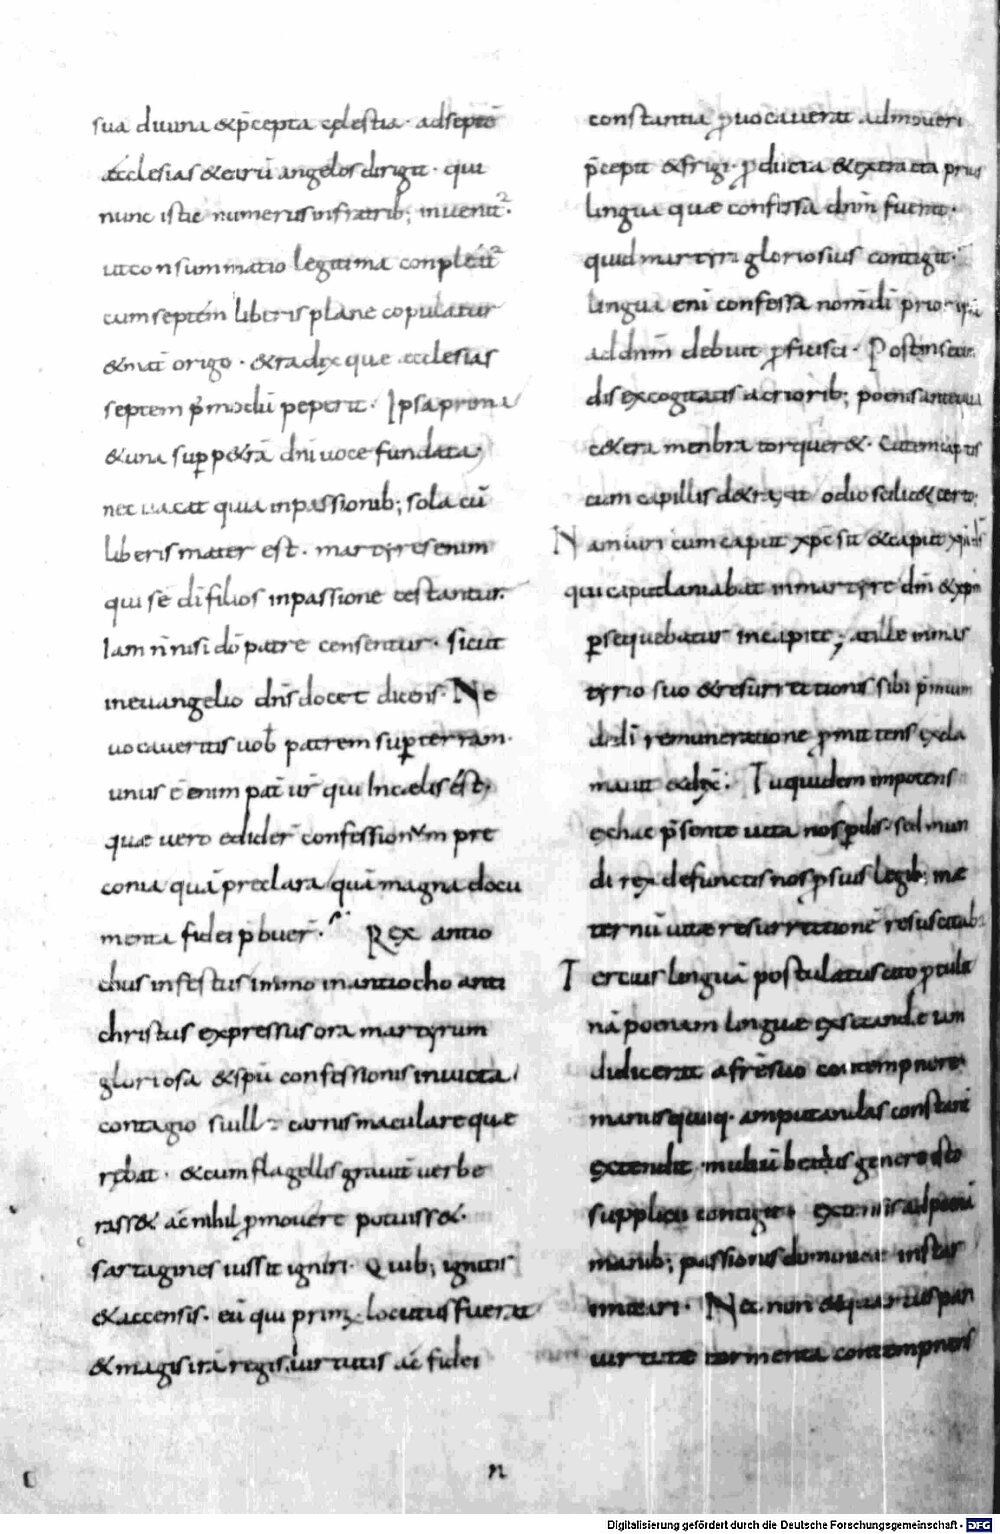 sua diuina &p̄cepta cęlestia· adseptē
æcclesias &earū angelos dirigit· qui
nunc iste numerus infratrib; inuenit᷑·
ut consummatio legitima conpleat᷑
cum septem liberis plane copulatur
&mat origo· &radix que ecclesias
septem p̄modū peperit· Ipsa prima
&una sup̱ p&rā dn̄i uoce fundata;
nec uacat quia inpassionib; sola cū
liberis mater est· martyres enim
qui se di filios inpassione testantur·
Iam n̄ nisi dō patre censentur· sicut
ineuangelio dn̄s docet dicens· Ne
uocaueritis uob̄ patrem sup̱ terram·
unus ē enim pat̄ ur̄ qui Incælis ést;
quæ uero edider̄ confessionum pre
conia quā preclara quā magna docu
menta fidei p̄buer̄· Rex antio
chus infestus immo inantiocho anti
christus expressus ora martyrum
gloriosa &spū confessionis inuicta
contagio suillæ carnis maculare quę
rebat· &cum flagellis grauit̄ uerbe
rass& ac nihil ꝓmouere potuiss&·
sartagines iussit igniri· Quib; ignitis
&accensis· eū qui primꝫ locutus fuerat
&magis irā regis uirtutis ac fidei
constantia ꝓuocauerat admoueri
p̄cepit &frigi· ꝓducta &extracta prius
lingua quæ confessa dn̄m fuerat·
quid martyri gloriosius contigit·
lingua eni confessa nom̄ di prior ipsa
addn̄m debuit ꝓficisci· Post insecun
dis excogitatis acriorib; poenis antequā
c&era menbra torquer&· Cutem capitis
cum capillis d&raxit odio scilic& certo·
Nam uiri cum caput xp̄c sit &caput xp̄i d̄s
qui caput laniabat inmartyre dm̄ &xp̄m
p̱sequebatur incapite; at ille inmar
tyrio suo &resurrectionis sibi p̄mium
dedi remuneratione ꝓmittens excla
mauit &dix̄: Tu quidem impotens
exhac p̄sente uita nos p̱dis· sed mun
di rex defunctos nos ꝓ suis legib; inæ
ternū uitæ resurrectionē resuscitab·
Tertius linguā postulatus cito ꝓtulit
nā poenam linguæ exsecandæ iam
didicerat afrē suo contempnere·
manus quoq· amputandas constant̄
extendit· multū beatus genere isto
supplicii contigit extensis ad poenā
manib; passionis dominicæ instar
imitari· Nec non &quartus pari
uirtute tormenta contempnens
n
Digitalisierung gefördert durch die Deutsche Forschungsgemeinschaft - DFG